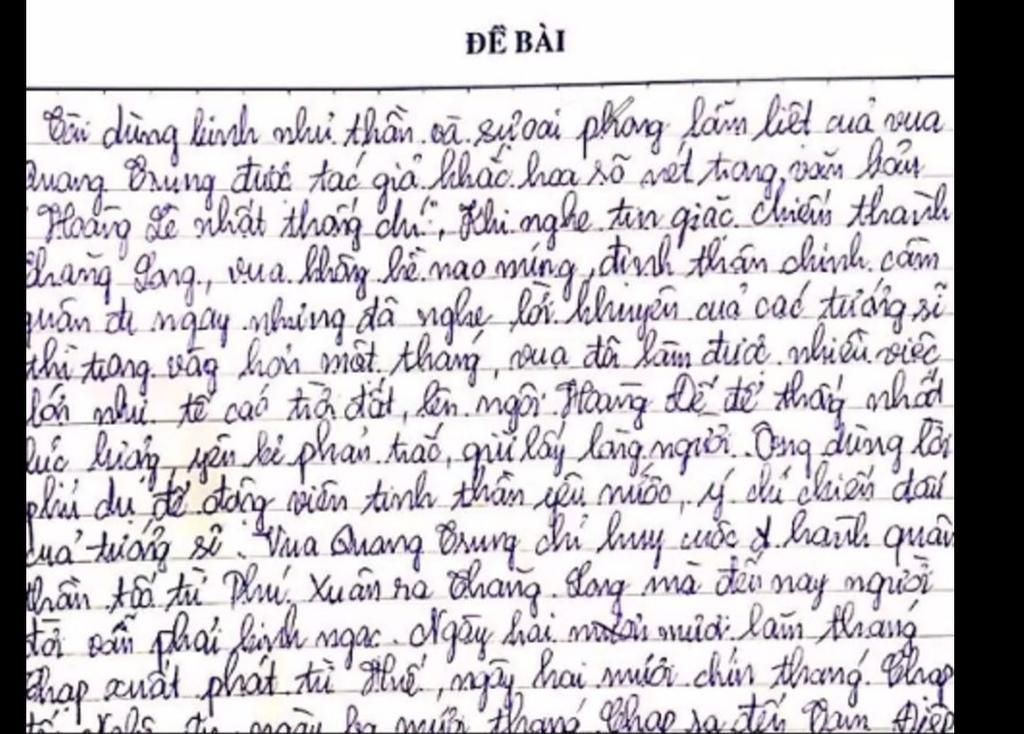 ĐỀ BÀI
Tài dùng binh như thần và sự oai phong lẫm liệt của vua
Quang Trung được tác giả khắc họa rõ nét trong văn bản
"Hoàng Lê nhất thống chí". Khi nghe tin giặc chiếm thành
Thăng Long, vua không hề nao núng, định thân chinh cầm
quân đi ngay nhưng đã nghe lời khuyên của các tướng sĩ
thì trong vòng hơn một tháng, vua đã làm được nhiều việc
lớn như tế cáo trời đất, lên ngôi Hoàng Đế để thống nhất
lực lượng, yên kẻ phản trắc, giữ lấy lòng người. Ông dùng lời
phủ dụ để động viên tinh thần yêu nước, ý chí chiến đấu
của tướng sĩ. Vua Quang Trung chỉ huy cuộc hành quân
thần tốc từ Phú Xuân ra Thăng Long mà đến nay người
đời vẫn phải kinh ngạc. Ngày hai mươi lăm tháng
Chạp xuất phát từ Huế, ngày hai mươi chín tháng Chạp
ngày ba mươi tháng Chạp ra đến Tam Điệp